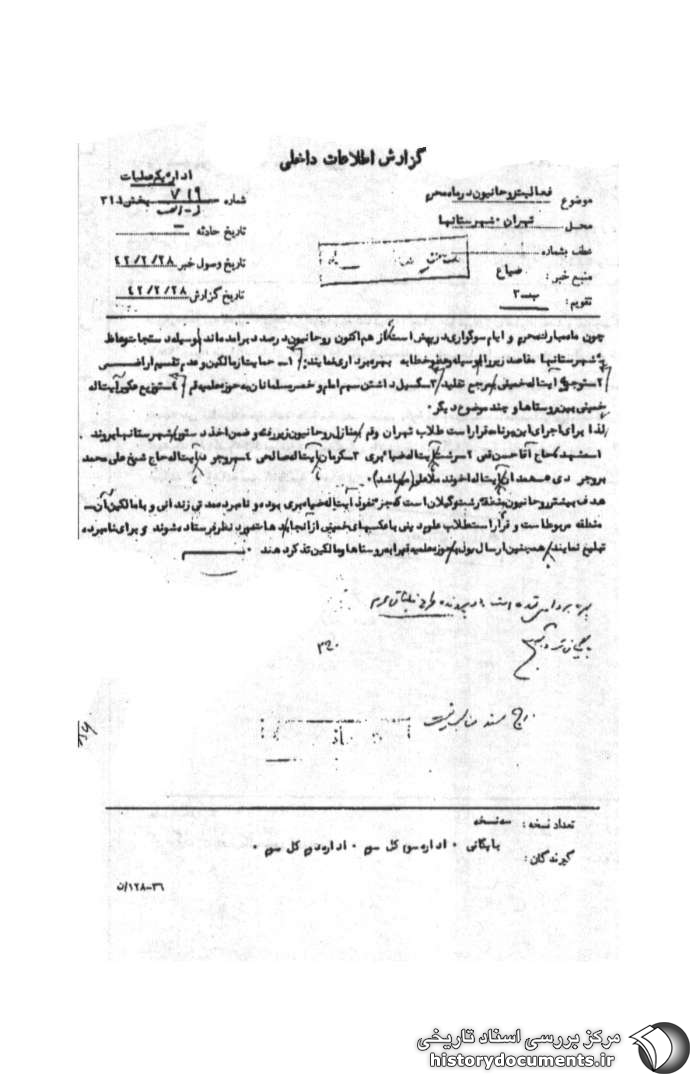 گزارش اطلاعات داخلی
اداره یکم عملیات
موضوع فعالیت روحانیون در ماه محرم
شماره ۷۱۹ بخش ۳۱۱
محل تهران - شهرستانها
تاریخ حادثه —
عطف بشماره
تاریخ وصول خبر ۴۲/۲/۲۸
منبع خبر :
تاریخ گزارش ۴۲/۲/۲۸
تقویم : ب-۳
چون ماه مبارک محرم و ایام سوگواری در پیش است از هم اکنون روحانیون در صدد برآمده‌اند بوسیله دستجات وعاظ
به شهرستانها مقاصد زیر را بوسیله وعظ و خطابه بهره برداری نمایند : ۱- حمایت از مالکین و عدم تقسیم اراضی
۲- توجه به آیت اله خمینی مرجع تقلید ۳- گسیل داشتن سهم امام و خمس مسلمانان به حوزه علمیه قم ۴- توزیع عکس آیت اله
خمینی بین روستاها و چند موضوع دیگر .
لذا برای اجرای این برنامه قرار است طلاب تهران و قم بمنازل روحانیون زیر رفته و ضمن اخذ دستور بشهرستانها بروند .
۱- مشهد حاج آقا حسن قمی ۲- رشت آیت اله ضیابری ۳- کرمان آیت اله صالحی ۴- بروجرد آیت اله حاج شیخ علی محمد
بروجردی همدان آیت اله آخوند ملاعلی (میباشد) .
هدف بیشتر روحانیون رشت و گیلان است که جزء نفوذ آیت اله ضیابری بوده و نامبرده مدتی زندانی و با مالکین آن
منطقه مربوط است و قرار است طلاب علوم دینی با عکسهای خمینی از آنجا بدهات مورد نظر فرستاده شوند و برای نامبرده
تبلیغ نمایند همچنین ارسال پول به حوزه علمیه قم را به روستاها و مالکین تذکر دهند .
بهره برداری شده است در پرونده طرح تبلیغاتی محرم
۳۲۰
درج سند مناسب نیست
تعداد نسخه : سه نسخه
گیرندگان : بایگانی . اداره کل سوم . اداره کل سوم .
۱۲۸-۳۶/ن
مرکز بررسی اسناد تاریخی
historydocuments.ir